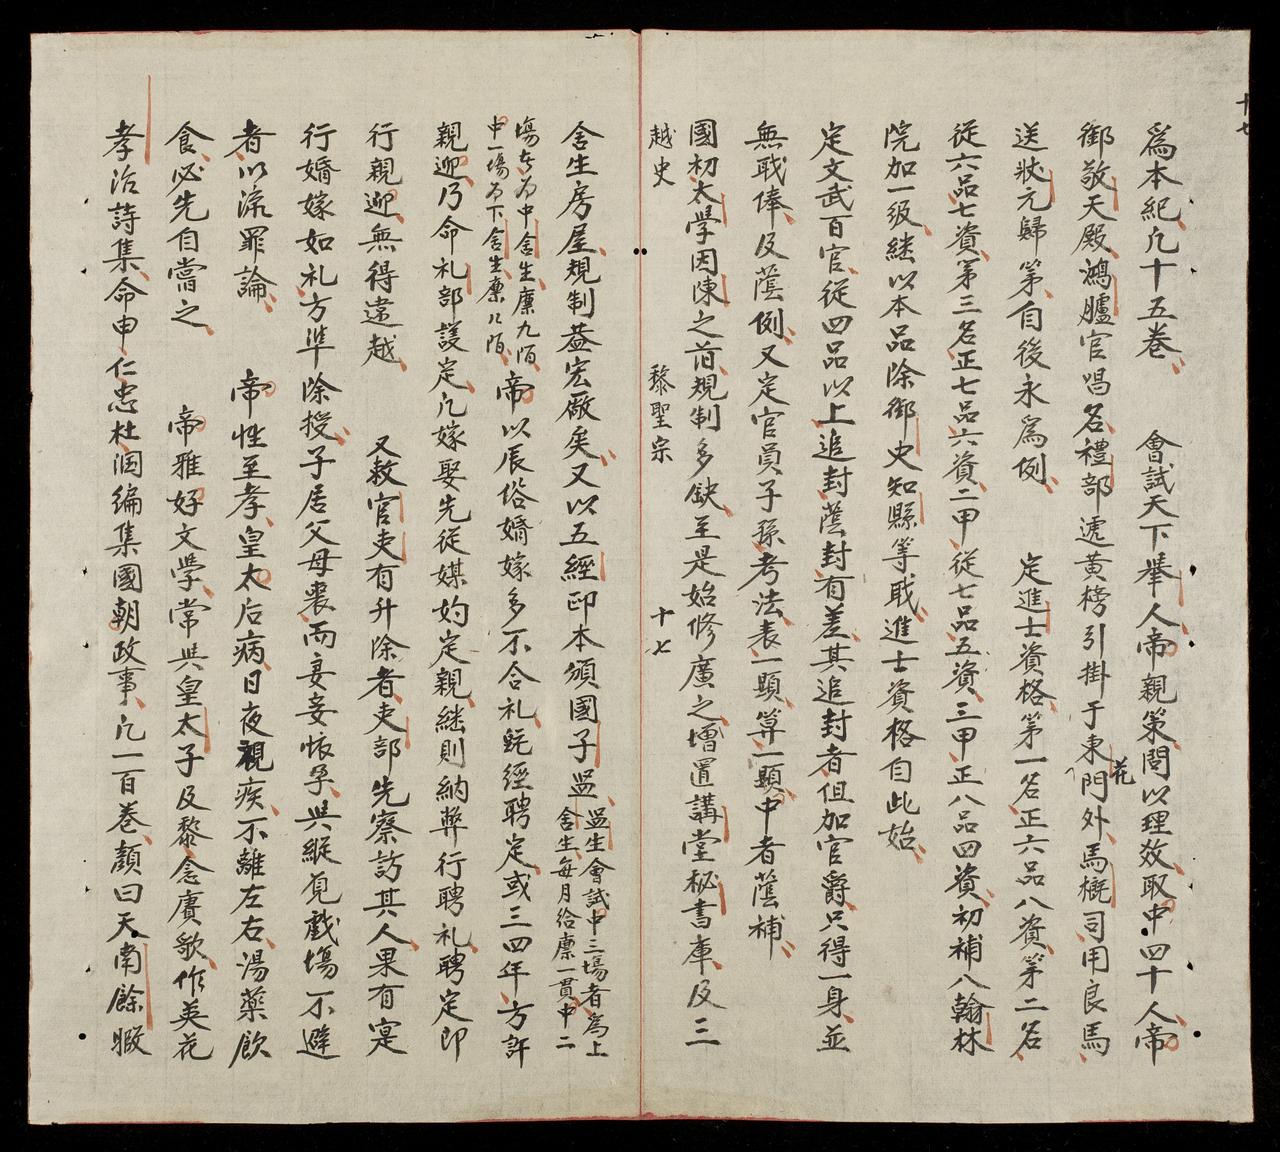 爲本紀凡十五卷　會試天下舉人帝親策問以理效取中四十人帝
御敬天殿鴻臚官唱名禮部遞黄榜引掛于東花門外馬檻司用良馬
送狀元歸第自後永爲例　定進士資格第一名正六品八資第二名
從六品七資第三名正七品六資二甲從七品五資三甲正八品四資初補八翰林
院加一級継以本品除御史知縣等戝進士資格自此始
定文武百官從四品以上追封蔭封有差其追封者但加官爵只得一身並
無戝俸及蔭例又定官員子孫考法表一題算一題中者蔭補
國初太學因陳之旧規制多缺至是始修廣之增置講堂秘書庫及三
越史　黎聖宗　十七
舍生房屋規制益宏廠矣又以五經印本頒國子监监生會試中三場者爲上舍生每月給廪一貫中二
場者为中舍生廪九陌中一場为下舍生廪八陌帝以辰俗婚嫁多不合礼既經聘定或三四年方許
親迎乃命礼部議定凡嫁娶先從媒妁定親継則納弊行聘礼聘定即
行親迎無得違越　又敕官吏有升除者吏部先察訪其人果有寔
行婚嫁如礼方準除授子居父母喪而妻妾懷孕與縦覓戲場不避
者以流罪論　帝性至孝皇太后病日夜視疾不離左右湯藥飲
食必先自嘗之　帝雅好文學常與皇太子及黎念賡歌作英花
孝治詩集命申仁忠杜润編集國朝政事凡一百卷顏曰天南餘暇
十七